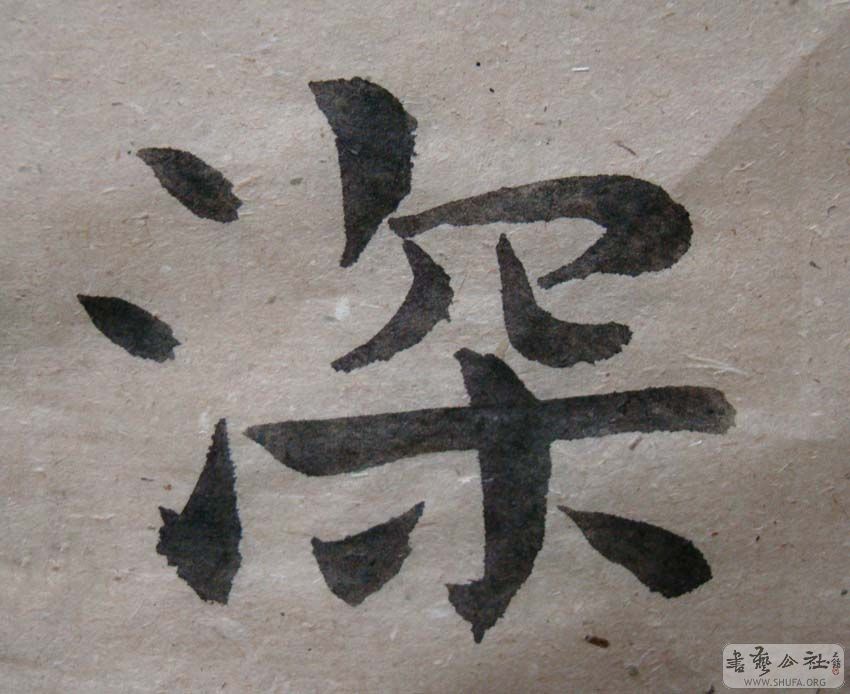 深
書藝公社
WWW.SHUFA.ORG